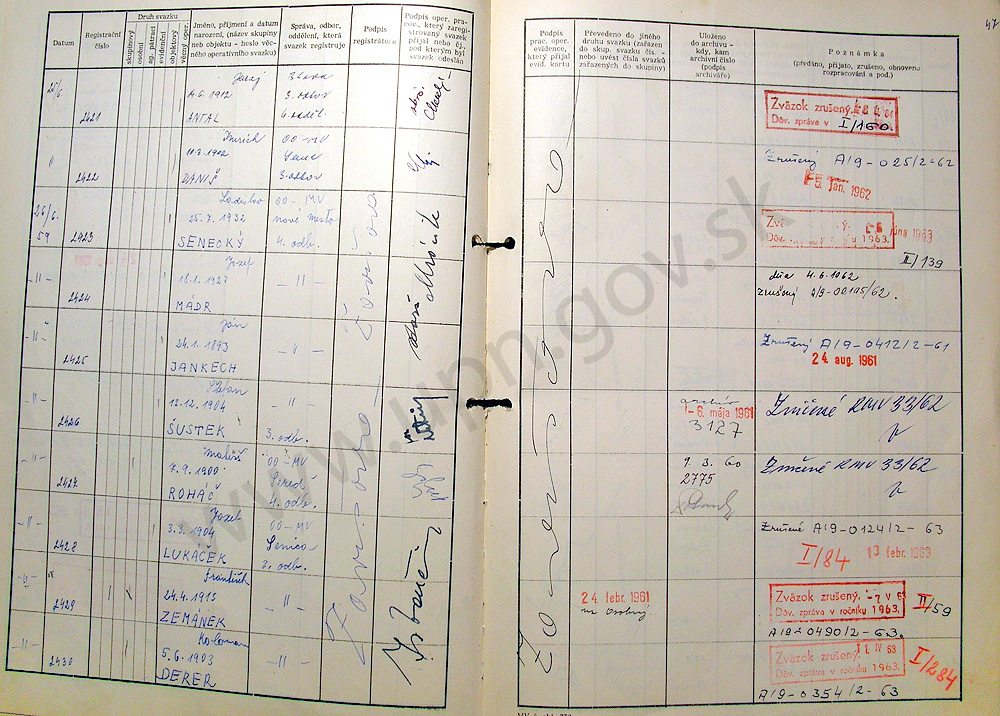 47
Datum
Registrační
číslo
Druh svazku
skupinový
osobní
ag. pátrací
evidenční
objektový
věcný oper.
Jméno, příjmení a datum
narození, (název skupiny
neb objektu - heslo věc-
ného operativního svazku)
Správa, odbor,
oddělení, která
svazek registruje
Podpis
registrátora
Podpis oper. pra-
cov., který zaregi-
stroyaný svazek
přijal nebo čj.
pod kterým byl
svazek odeslán
Podpis
prac. oper.
evidence,
který přijal
evid. kartu
Převedeno do jiného
druhu svazku (zařazen
do skup. svazku čís. -
nebo uvést čísla svazků
zařazených do skupiny)
Uloženo
do archivu -
kdy, kam
archivní číslo
(podpis
archiváře)
Poznámka
(předáno, přijato, zrušeno, obnoveno
rozpracování a pod.)
25/6.
2421
Juraj
4.6. 1912
ANTAL
3. odbor
4. oddel.
Zväzok zrušený
Dôv. zpráva v I/160.
2422
1902
DANIŠ
00-MV
3. odbor
Zrušený A/9-025/2-62
5. jan. 1962
26/6.
59
2423
Ladislav
25. 7. 1932
SENECKÝ
00-MV
nové mesto
4. odb.
júna 1963
1963.
II/139
-"-
2424
Jozef
18.1. 1927
MÁDR
-"-
dňa 4.6.1962
zrušený A/9-00195/62.
-"-
2425
Ján
24.1. 1893
JANKECH
-"-
Zrušený A/9-0412/2-61
24 aug. 1961
-"-
2426
Štefan
12.12. 1904
ŠUSTEK
3. odb.
archív
-6. mája 1961
3127
Zničené RMV 33/62
-"-
2427
Matúš
7. 9. 1900
ROHÁČ
00-MV
Sereď
4. odb.
9. 3. 60
2775
Zničené RMV 33/62
-"-
2428
Jozef
3. 3. 1904
LUKÁČEK
00-MV
Senica
2. odb.
Zrušené A/9-0124/2-63
I/84 13 febr. 1963
-"-
2429
František
24.4. 1915
ZEMÁNEK
-"-
24 febr. 1961
na osobný.
Zväzok zrušený -7 V 63
Dôv. zpráva v ročníku 1963. II/59
A/9-0490/2-63.
-"-
2430
Koloman
5.6. 1903
DERER
-"-
Zväzok zrušený 11 IV 63
Dôv. zpráva v ročníku 1963. I/284
A/9-0354/2-63
www.upn.gov.sk